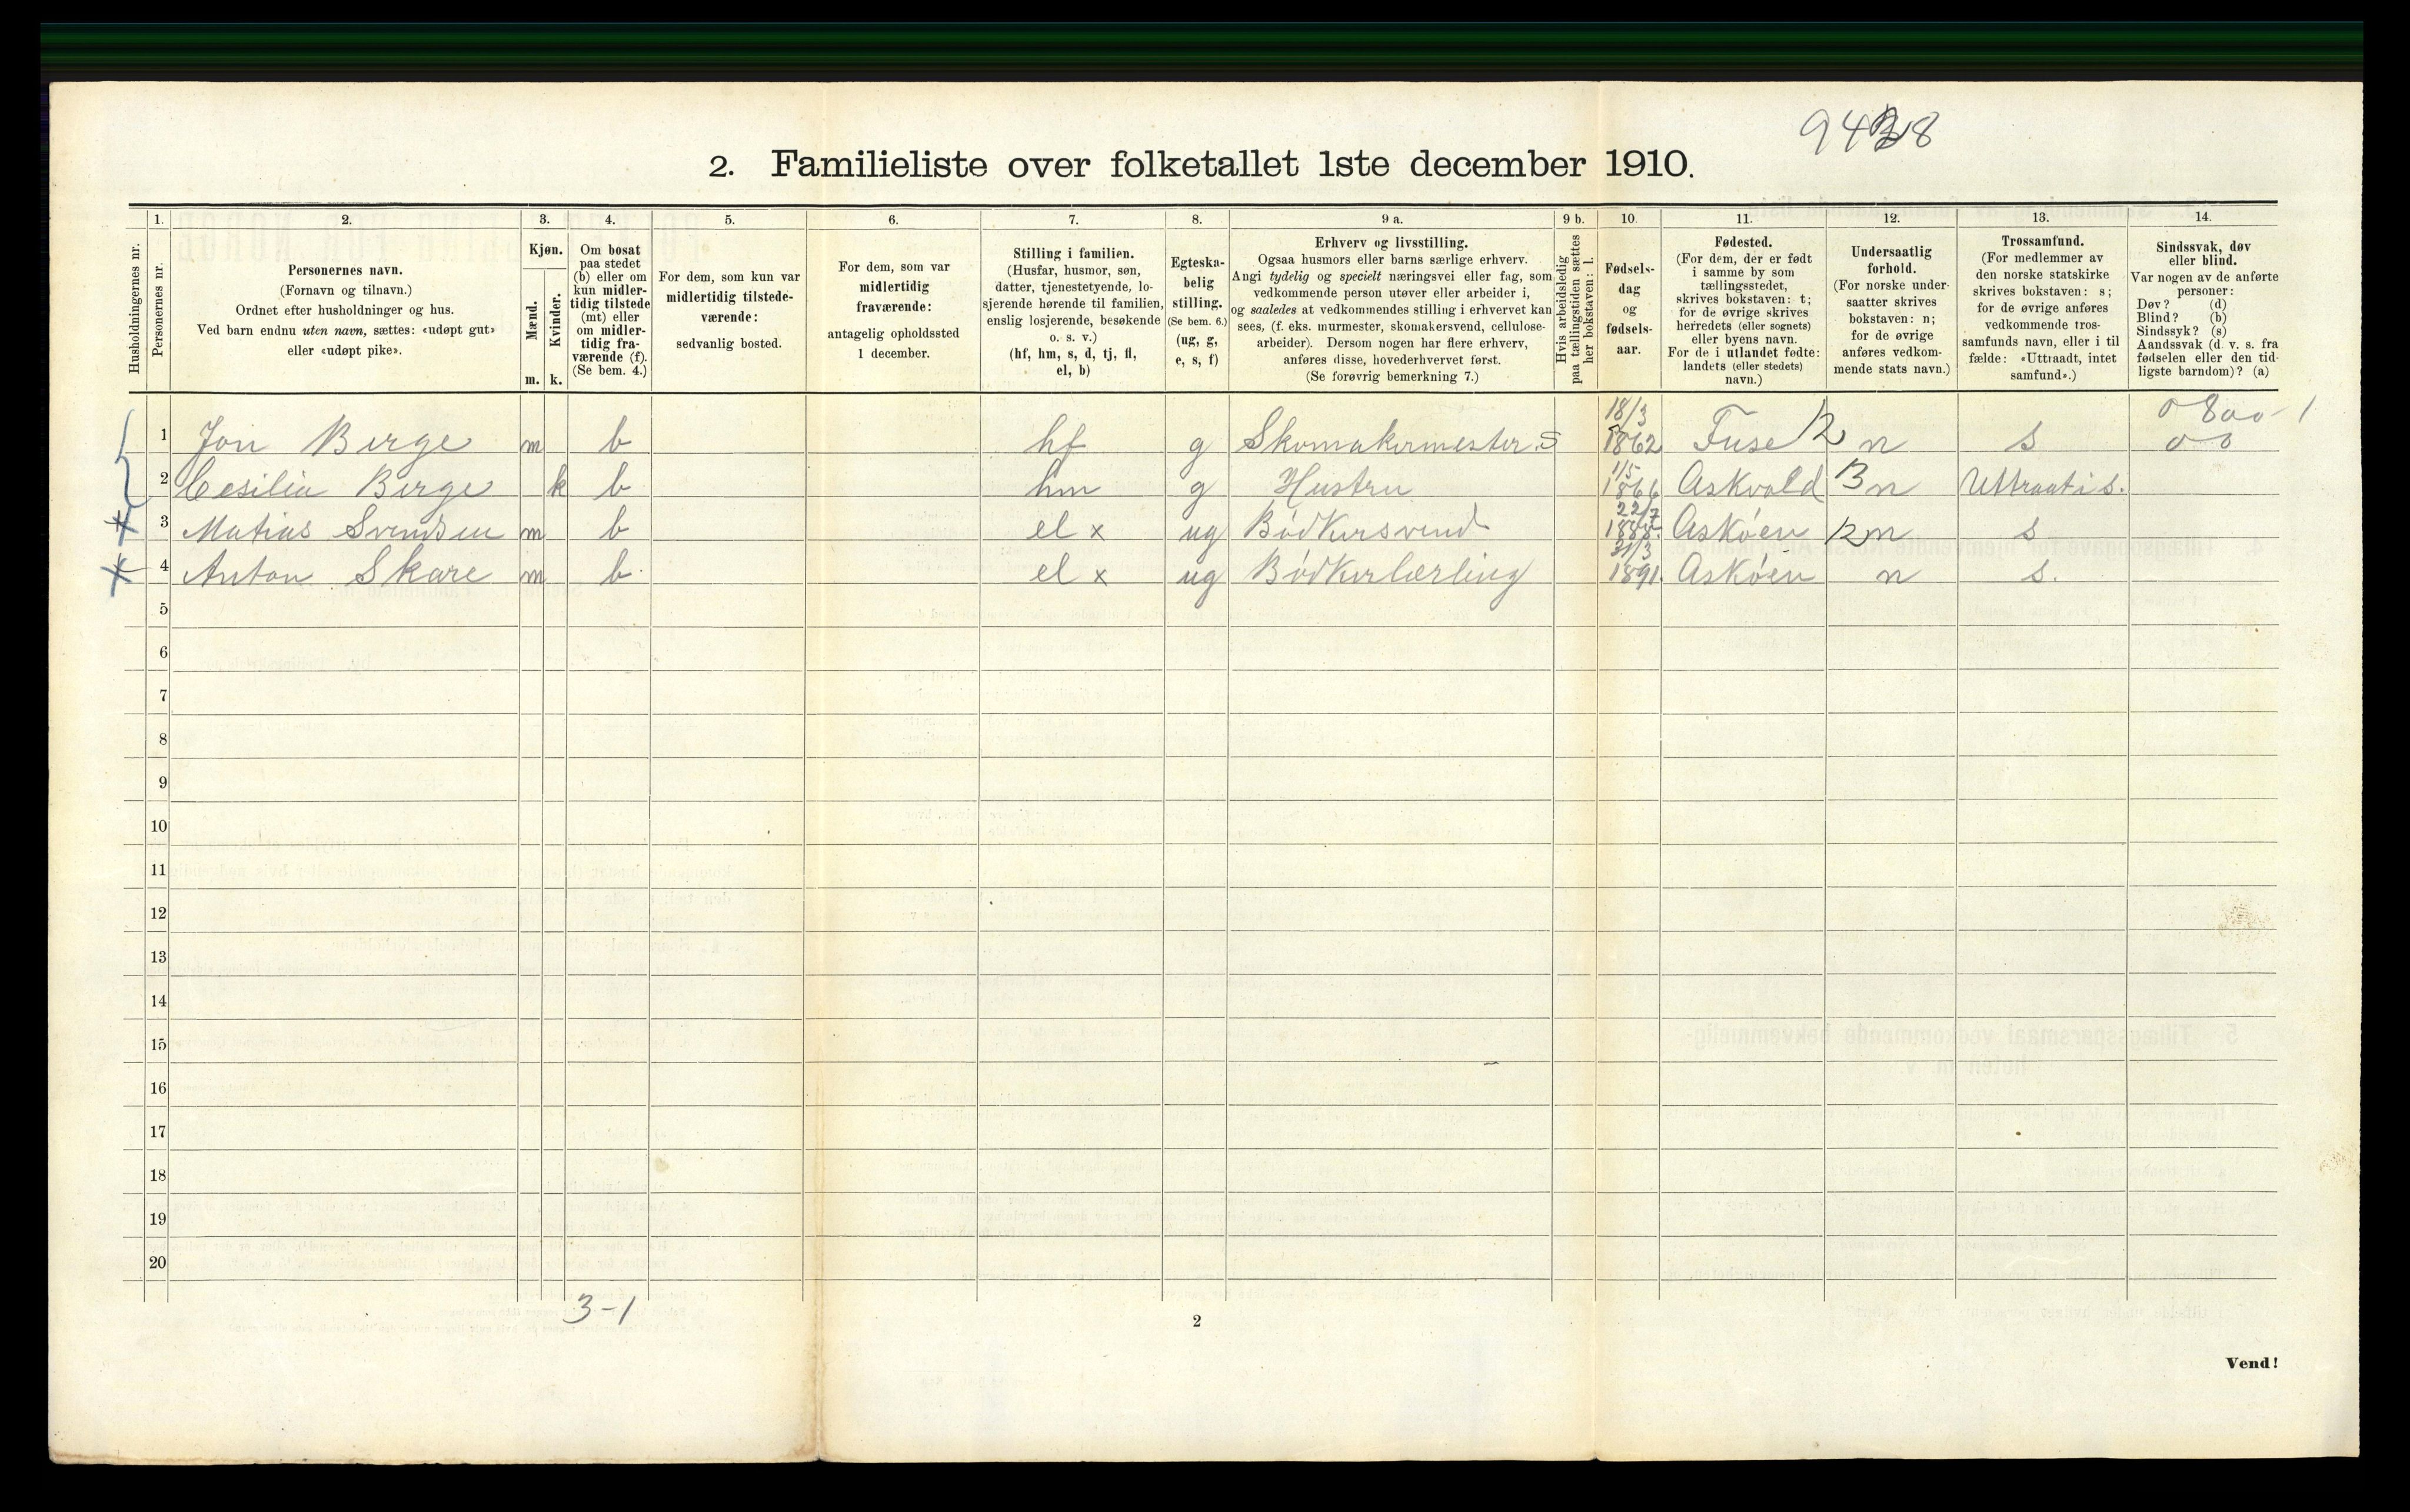 2. Familieliste over folketallet 1ste december 1910.
1. 2. 3. 4. 5. 6. 7. 8. 9 a. 9 b. 10. 11. 12. 13. 14.
Husholdningernes nr.
Personernes nr.
Personernes navn.
(Fornavn og tilnavn.)
Ordnet efter husholdninger og hus.
Ved barn endnu uten navn, sættes: «udøpt gut»
eller «udøpt pike».
Kjøn.
Mænd.
Kvinder.
m. k.
Om bosat
paa stedet
(b) eller om
kun midler-
tidig tilstede
(mt) eller
om midler-
tidig fra-
værende (f).
(Se bem. 4.)
For dem, som kun var
midlertidig tilstede-
værende:
sedvanlig bosted.
For dem, som var
midlertidig
fraværende:
antagelig opholdssted
1 december.
Stilling i familien.
(Husfar, husmor, søn,
datter, tjenestetyende, lo-
sjerende hørende til familien,
enslig losjerende, besøkende
o. s. v.)
(hf, hm, s, d, tj, fl,
el, b)
Egteska-
belig
stilling.
(Se bem. 6.)
(ug, g,
e, s, f)
Erhverv og livsstilling.
Ogsaa husmors eller barns særlige erhverv.
Angi tydelig og specielt næringsvei eller fag, som
vedkommende person utøver eller arbeider i,
og saaledes at vedkommendes stilling i erhvervet kan
sees, (f. eks. murmester, skomakersvend, cellulose-
arbeider). Dersom nogen har flere erhverv,
anføres disse, hovederhvervet først.
(Se forøvrig bemerkning 7.)
Hvis arbeidsledig
paa tællingstiden sættes
her bokstaven: l.
Fødsels-
dag
og
fødsels-
aar.
Fødested.
(For dem, der er født
i samme by som
tællingsstedet,
skrives bokstaven: t;
for de øvrige skrives
herredets (eller sognets)
eller byens navn.
For de i utlandet fødte:
landets (eller stedets)
navn.)
Undersaatlig
forhold.
(For norske under-
saatter skrives
bokstaven: n;
for de øvrige
anføres vedkom-
mende stats navn.)
Trossamfund.
(For medlemmer av
den norske statskirke
skrives bokstaven: s;
for de øvrige anføres
vedkommende tros-
samfunds navn, eller i til
fælde: «Uttraadt, intet
samfund».)
Sindssvak, døv
eller blind.
Var nogen av de anførte
personer:
Døv? (d)
Blind? (b)
Sindssyk? (s)
Aandssvak (d. v. s. fra
fødselen eller den tid-
ligste barndom)? (a)
1 Jon Berge m b hf g Skomakermester. 18/3 1862 Fuse n s
2 Cesilia Berge k b hm g Hustru 1/5 1866 Askvold B n Uttraat i s.
3 Matias Svendsen m b el x ug Bödkersvend 22/7 1888. Asköen n s
4 Anton Skare m b el x ug Bödkerlærling 31/3 1891. Asköen n s.
5
6
7
8
9
10
11
12
13
14
15
16
17
18
19
20
3-1
2
Vend!